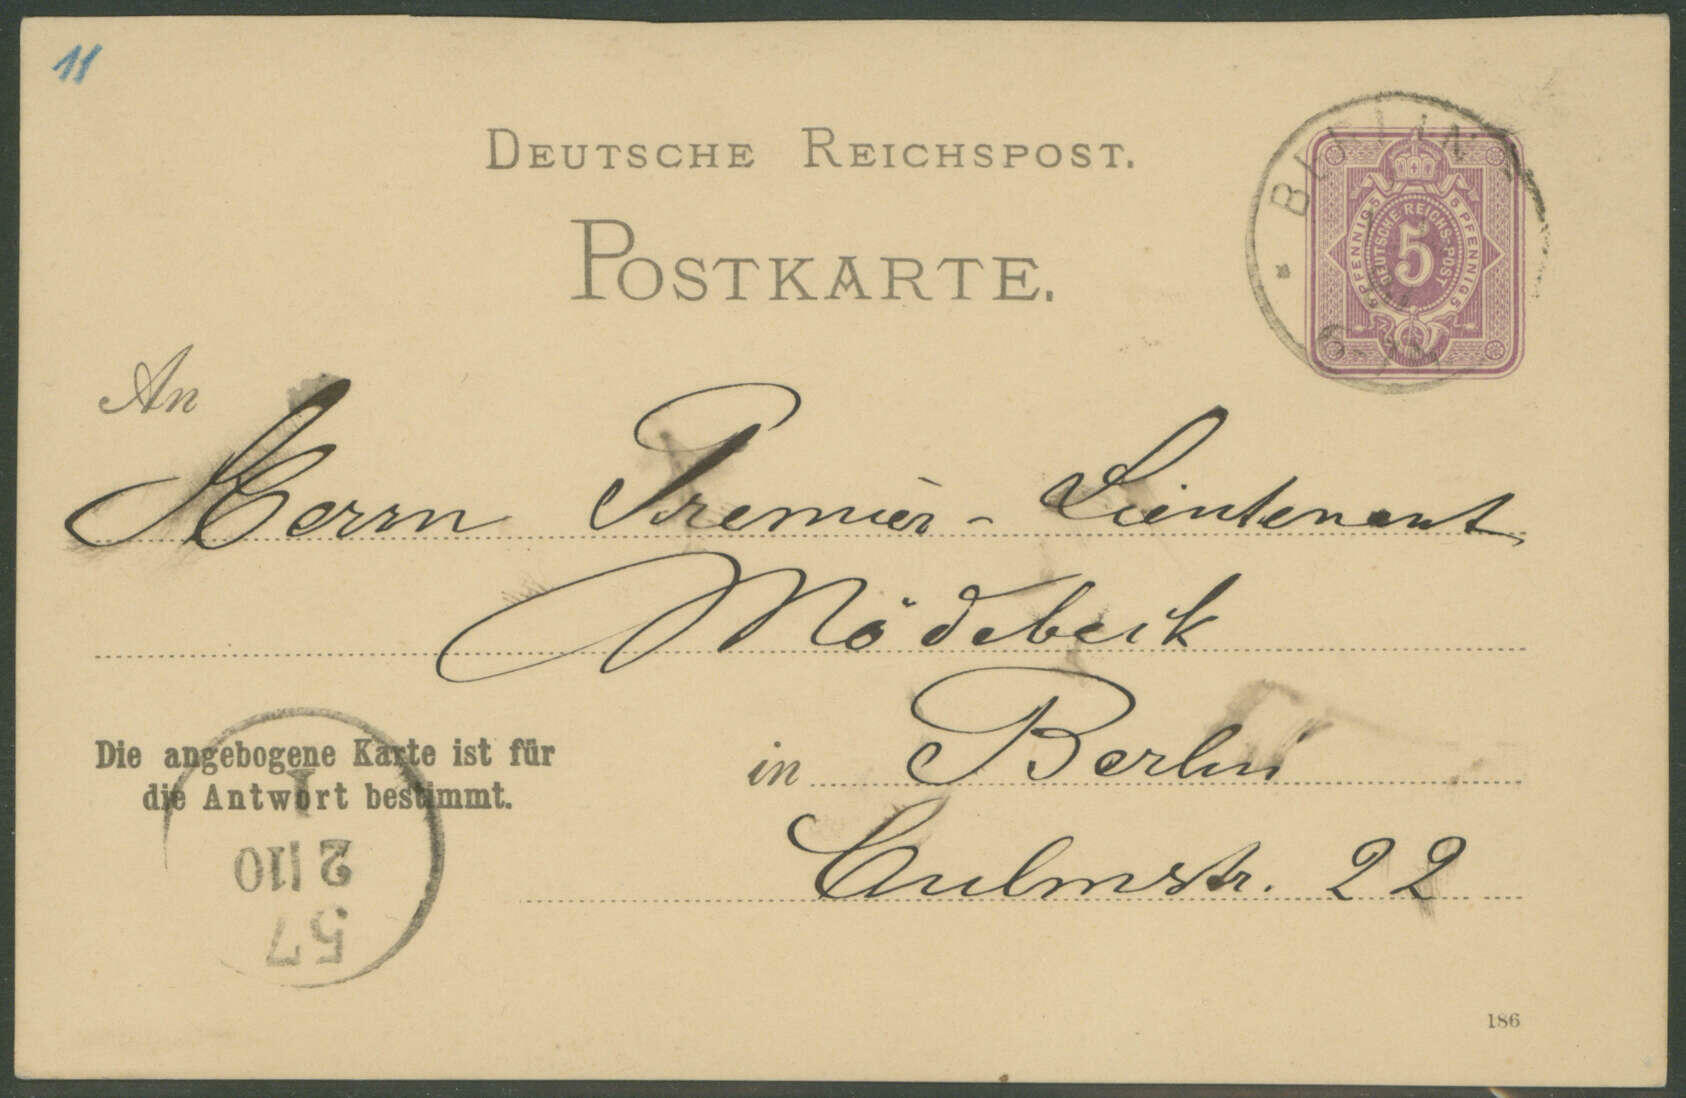 11
DEUTSCHE REICHSPOST.
POSTKARTE.
5 PFENNIG 5 5 PFENNIG 5
DEUTSCHE REICHS-POST
5
An
Herrn Premier-Lieutenant
Mödebeck
Die angebogene Karte ist für
die Antwort bestimmt.
in Berlin
Culmstr. 22
1
2|10
57
186